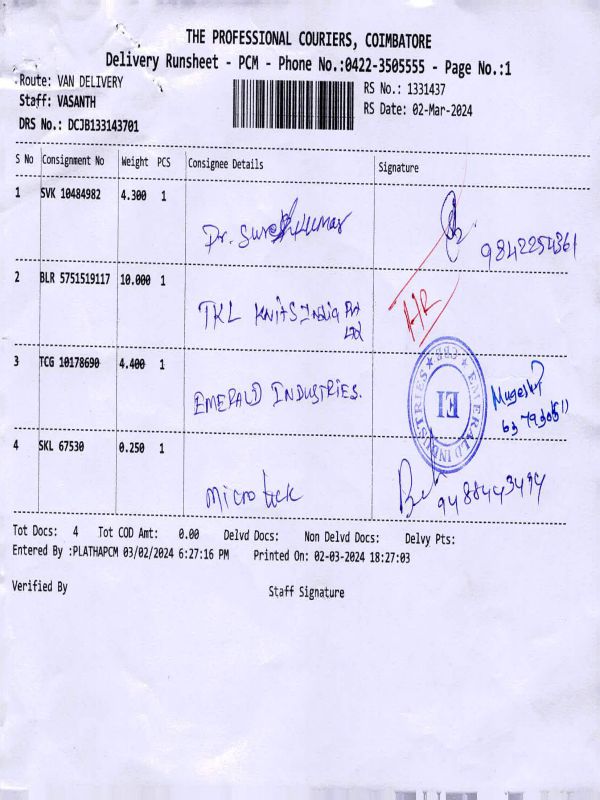 THE PROFESSIONAL COURIERS, COIMBATORE
Delivery Runsheet - PCM - Phone No.:0422-3505555 - Page No.:1
Route: VAN DELIVERY
RS No.: 1331437
Staff: VASANTH
RS Date: 02-Mar-2024
DRS No.: DCJB133143701
S No Consignment No Weight PCS Consignee Details Signature
1 SVK 10484982 4.300 1
Dr. Suresh Kumar
9842254361
2 BLR 5751519117 10.000 1
TKL KNITS India Pvt
Ltd
A/R
3 TCG 10178690 4.400 1
EMERALD INDUSTRIES.
EMERALD INDUSTRIES
CBE
EI
4 SKL 67530 0.250 1
Micro tick
9488443494
Tot Docs: 4 Tot COD Amt: 0.00 Delvd Docs: Non Delvd Docs: Delvy Pts:
Entered By :PLATHAPCM 03/02/2024 6:27:16 PM Printed On: 02-03-2024 18:27:03
Verified By
Staff Signature